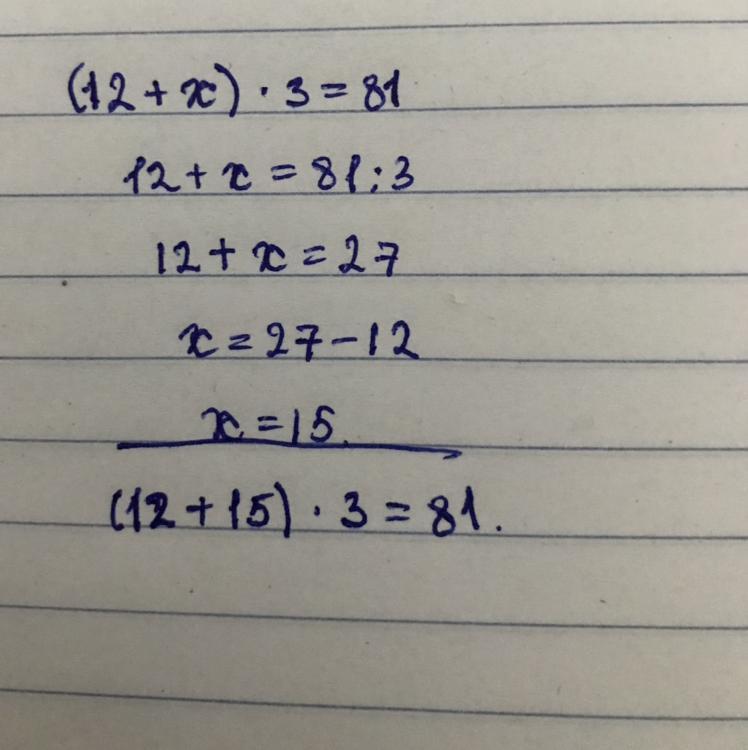 (12 + x) · 3 = 81
12 + x = 81 : 3
12 + x = 27
x = 27 - 12
x = 15.
(12 + 15) · 3 = 81.